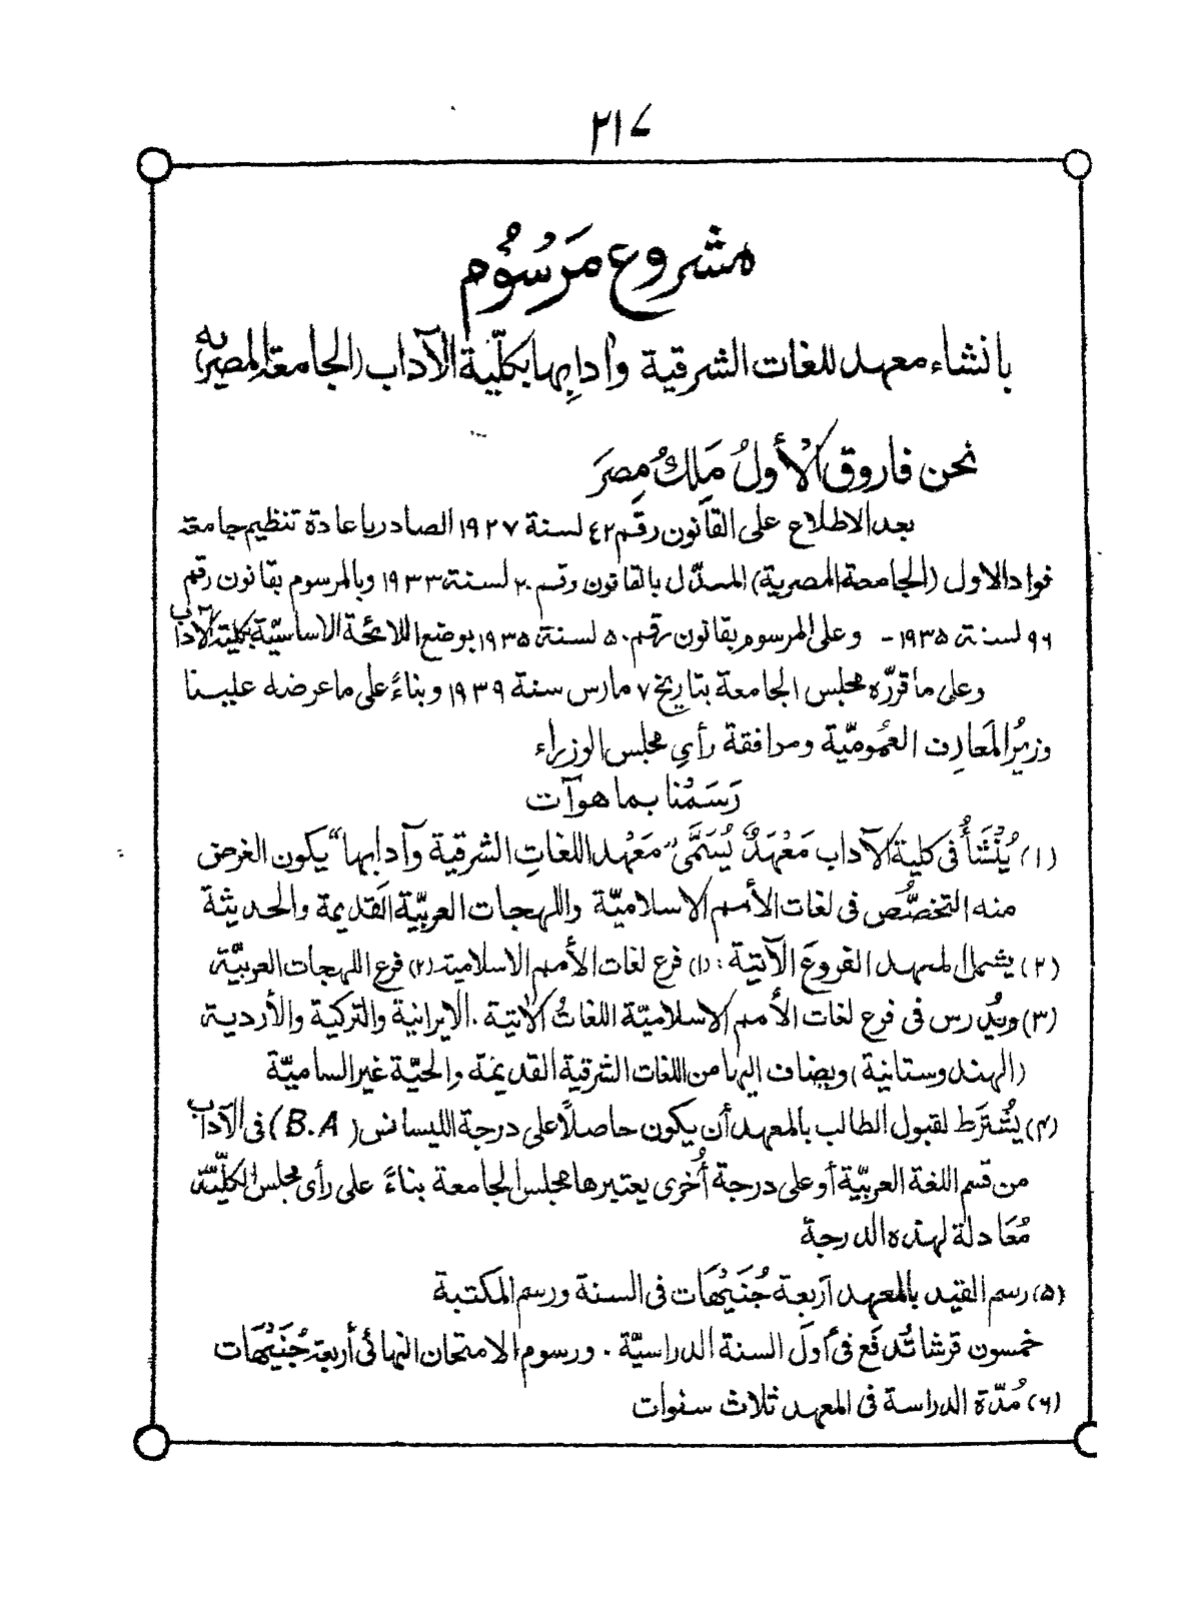 ٢١٧
مشروع مَرسُوُم
بانشاء معهد للغات الشرقية وآدابِها بكلّية الآداب (الجامعة المصريه)
نحن فاروق الأولُ مَلِكُ مِصرَ
بعد الاطلاع على القانون رقم ٤٢ لسنة ١٩٢٧ الصادر باعادة تنظيم جامعة
فواد الاول (الجامعة المصرية) المعدّل بالقانون رقم ٢٠ لسنة ١٩٣٣ وبالمرسوم بقانون رقم
٩٦ لسنة ١٩٣٥ - وعلى المرسوم بقانون رقم ٥٠ لسنة ١٩٣٥ بوضع اللائحة الاساسيّة بكلية الآداب
وعلى ما قررّه مجلس الجامعة بتاريخ ٧ مارس سنة ١٩٣٩ وبناءً على ما عرضه علينا
وزيرُ المَعارِف العمُوميّة وموافقة رأي مجلس الوزراء
رَسَمْنا بما هو آت
(١) يُنْشَأُ فى كلية الآداب مَعْهَدٌ يُسَمَّى "مَعْهد اللغاتِ الشرقية وآدابها" يكون الغرض
منه التخصُّص فى لغات الأمم الاسلاميّة واللهجات العربيّة القديمة والحديثة
(٢) يشمل المعهد الفروعَ الآتية : (١) فرع لغات الأمم الاسلامية (٢) فرع اللهجات العربيّة
(٣) ويُدرس فى فرع لغات الأمم الاسلاميّة اللغاتُ الآتية . الايرانية والتركية والأردية
(الهندوستانية) ويضاف اليها من اللغات الشرقية القديمة والحيّة غير الساميّة
(۴) يُشتَرَط لقبول الطالب بالمعهد أن يكون حاصلًا على درجة الليسانس (B.A) فى الآداب
من قسم اللغة العربيّة أو على درجة أُخرى يعتبرها مجلس الجامعة بناءً على رأى مجلس الكلّيّة
مُعَادلة لهذه الدرجة
(۵) رسم القيد بالمعهد أربعة جُنَيْهَات فى السنة ورسم المكتبة
خمسون قرشا تُدفَع فى أوّل السنة الدراسيّة . ورسوم الامتحان النهائى أربعة جُنَيْهَات
(۶) مُدّة الدراسة فى المعهد ثلاث سنوات